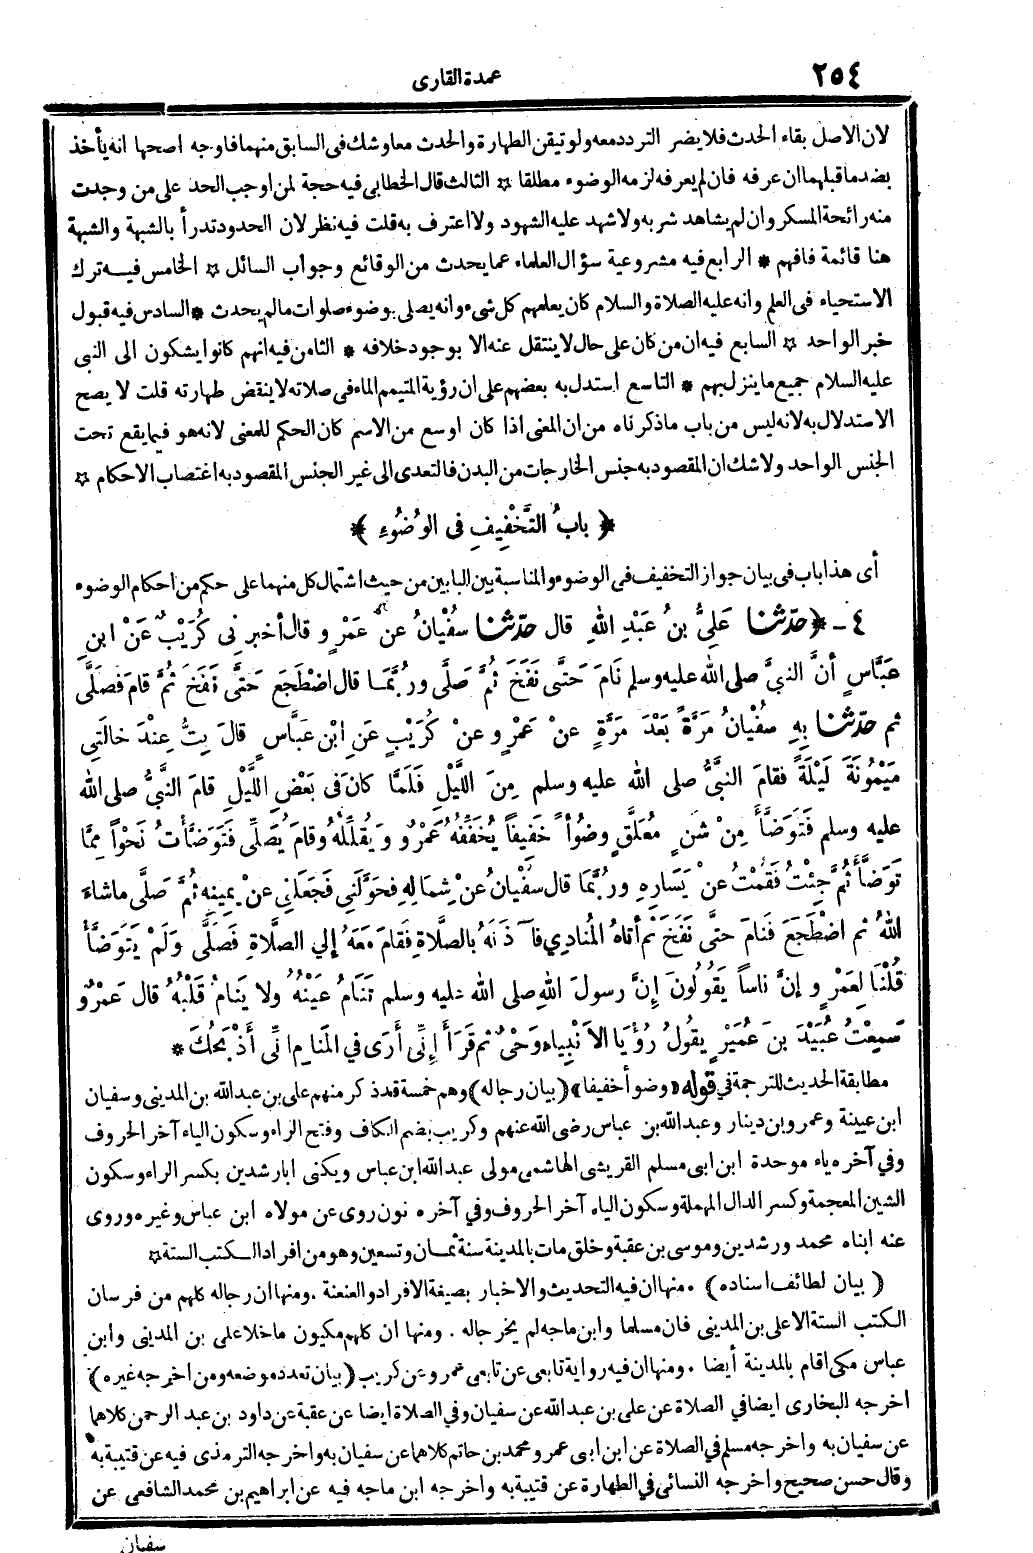 ٢٥٤
عمدة القارى
لان الاصل بقاء الحدث فلا يضر التردد معه ولو تيقن الطهارة والحدث معا وشك فى السابق منهما فاوجه اصحها انه يأخذ
بضد ما قبلهما ان عرفه فان لم يعرفه لزمه الوضوء مطلقا ☆ الثالث قال الخطابى فيه حجة لمن اوجب الحد على من وجدت
منه رائحة المسكر وان لم يشاهد شربه ولا شهد عليه الشهود ولا اعترف به قلت فيه نظر لان الحدود تدرأ بالشبهة والشبهة
هنا قائمة فافهم * الرابع فيه مشروعية سؤال العلماء عما يحدث من الوقائع وجواب السائل ☆ الخامس فيه ترك
الاستحياء فى العلم وانه عليه الصلاة والسلام كان يعلمهم كل شىء وانه يصلى بوضوء صلوات مالم يحدث * السادس فيه قبول
خبر الواحد ☆ السابع فيه ان من كان على حال لا ينتقل عنه الا بوجود خلافه * الثامن فيه انهم كانوا يشكون الى النبى
عليه السلام جميع ما ينزل بهم * التاسع استدل به بعضهم على ان رؤية المتيمم الماء فى صلاته لا ينقض طهارته قلت لا يصح
الاستدلال به لانه ليس من باب ما ذكرناه من ان المعنى اذا كان اوسع من الاسم كان الحكم للمعنى لانه هو فيما يقع تحت
الجنس الواحد ولا شك ان المقصود به جنس الخارجات من البدن فالتعدى الى غير الجنس المقصود به اغتصاب الاحكام ☆
﴿ بابُ التَّخْفِيفِ فى الوُضُوءِ ﴾
أى هذا باب فى بيان جواز التخفيف فى الوضوء والمناسبة بين البابين من حيث اشتمال كل منهما على حكم من احكام الوضوء
٤ - ﴿ حدّثنا عَلِىُّ بنُ عَبْدِ اللهِ قال حدّثنا سُفْيانُ عن عَمْرٍو قال أخبرنى كُرَيْبٌ عَنْ ابنِ
عَبَّاسٍ أنَّ النبىَّ صلى الله عليه وسلم نَامَ حَتَّى نَفَخَ ثُمَّ صَلَّى ورُبَّمَا قال اضْطَجَعَ حَتَّى نَفَخَ ثُمَّ قامَ فصَلَّى
ثم حدّثنا بِهِ سُفْيانُ مَرَّةً بَعْدَ مَرَّةٍ عنْ عَمْرٍو عنْ كُرَيْبٍ عَنِ ابْنِ عَبَّاسٍ قالَ بِتُّ عِنْدَ خالَتِى
مَيْمُونَةَ لَيْلَةً فقامَ النبىُّ صلى الله عليه وسلم مِنَ اللَّيْلِ فَلَمَّا كانَ فى بَعْضِ اللَّيْلِ قامَ النَّبىُّ صلى الله
عليه وسلم فَتَوَضَّأَ مِنْ شَنٍّ مُعَلَّقٍ وضُوأً خَفيفاً يُخَفِّفُهُ عَمْرٌو ويُقَلِّلُهُ وقامَ يُصَلِّى فَتَوَضَّأْتُ نَحْواً مِمَّا
تَوَضَّأَ ثُمَّ جِئْتُ فَقُمْتُ عنْ يَسَارِهِ ورُبَّمَا قال سُفْيانُ عنْ شِمالِهِ فحَوَّلَنِى فَجَعَلَنِى عنْ يمِينِهِ ثُمَّ صَلَّى ماشاءَ
اللهُ ثم اضْطَجَعَ فَنامَ حتَّى نَفَخَ ثم أتاهُ المُنادِى فآذَنَهُ بالصلاةِ فقامَ معَهُ إلى الصَّلاةِ فَصَلَّى وَلَمْ يَتَوَضَّأْ
قُلْنَا لِعَمْرٍو إنَّ ناساً يَقُولُونَ إنَّ رسولَ اللهِ صلى الله عليه وسلم تَنَامُ عَيْنُهُ ولا يَنامُ قَلْبُهُ قال عَمْرٌو
سَمِعْتُ عُبَيْدَ بنَ عُمَيْرٍ يقُولُ رُؤْيَا الأنْبِياءِ وَحْىٌ ثم قَرَأَ إنِّى أَرَى فِي المَنَامِ انِّى أَذْبَحُكَ *
مطابقة الحديث للترجمة فى قوله «وضوأ خفيفا» (بيان رجاله) وهم خمسة قد ذكر منهم على بن عبدالله بن المدينى وسفيان
ابن عيينة وعمرو بن دينار وعبدالله بن عباس رضى الله عنهم وكريب بضم الكاف وفتح الراء وسكون الياء آخر الحروف
وفى آخره باء موحدة ابن ابى مسلم القريشى الهاشمى مولى عبدالله ابن عباس ويكنى ابا رشدين بكسر الراء وسكون
الشين المعجمة وكسر الدال المهملة وسكون الياء آخر الحروف وفى آخره نون روى عن مولاه ابن عباس وغيره وروى
عنه ابناه محمد ورشدين وموسى بن عقبة وخلق مات بالمدينة سنة ثمان وتسعين وهو من افراد الكتب الستة ☆
( بيان لطائف اسناده ) . منها ان فيه التحديث والاخبار بصيغة الافراد والعنعنة . ومنها ان رجاله كلهم من فرسان
الكتب الستة الا على بن المدينى فان مسلما وابن ماجه لم يخرجا له . ومنها ان كلهم مكيون ما خلا على بن المدينى وابن
عباس مكى اقام بالمدينة أيضا . ومنها ان فيه رواية تابعى عن تابعى عمرو عن كريب (بيان تعدد موضعه ومن اخرجه غيره)
اخرجه البخارى ايضا فى الصلاة عن على بن عبدالله عن سفيان وفى الصلاة ايضا عن عقبة عن داود بن عبد الرحمن كلاهما
عن سفيان به واخرجه مسلم فى الصلاة عن ابن ابى عمر ومحمد بن حاتم كلاهما عن سفيان به واخرجه الترمذى فيه عن قتيبة به
وقال حسن صحيح واخرجه النسائى فى الطهارة عن قتيبة به واخرجه ابن ماجه فيه عن ابراهيم بن محمد الشافعى عن
سفيان